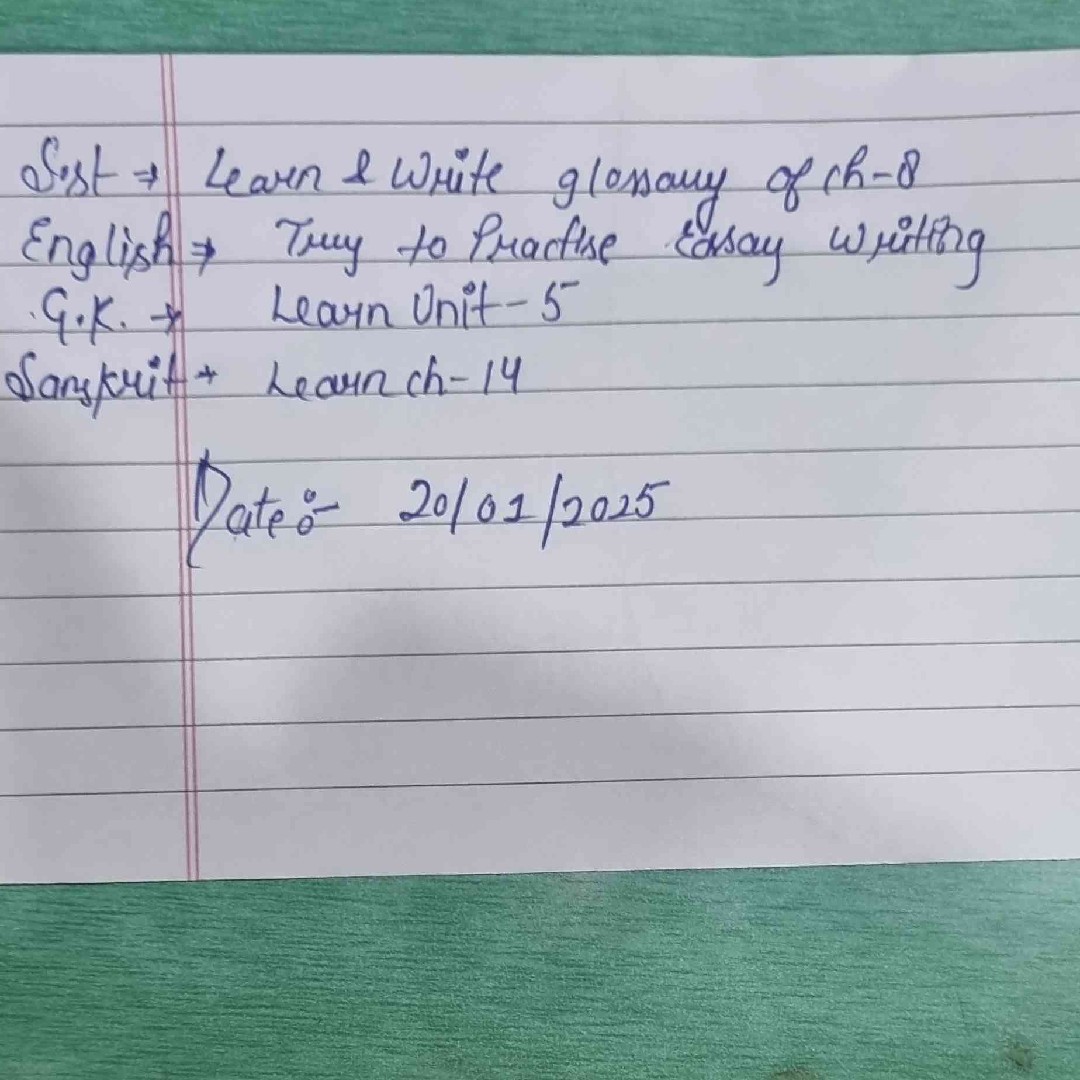 S.st → Learn & Write glossary of ch-8
English → Try to Practise Essay Writing
G.K. → Learn Unit-5
Sanskrit → Learn ch-14
Date:- 20/01/2025